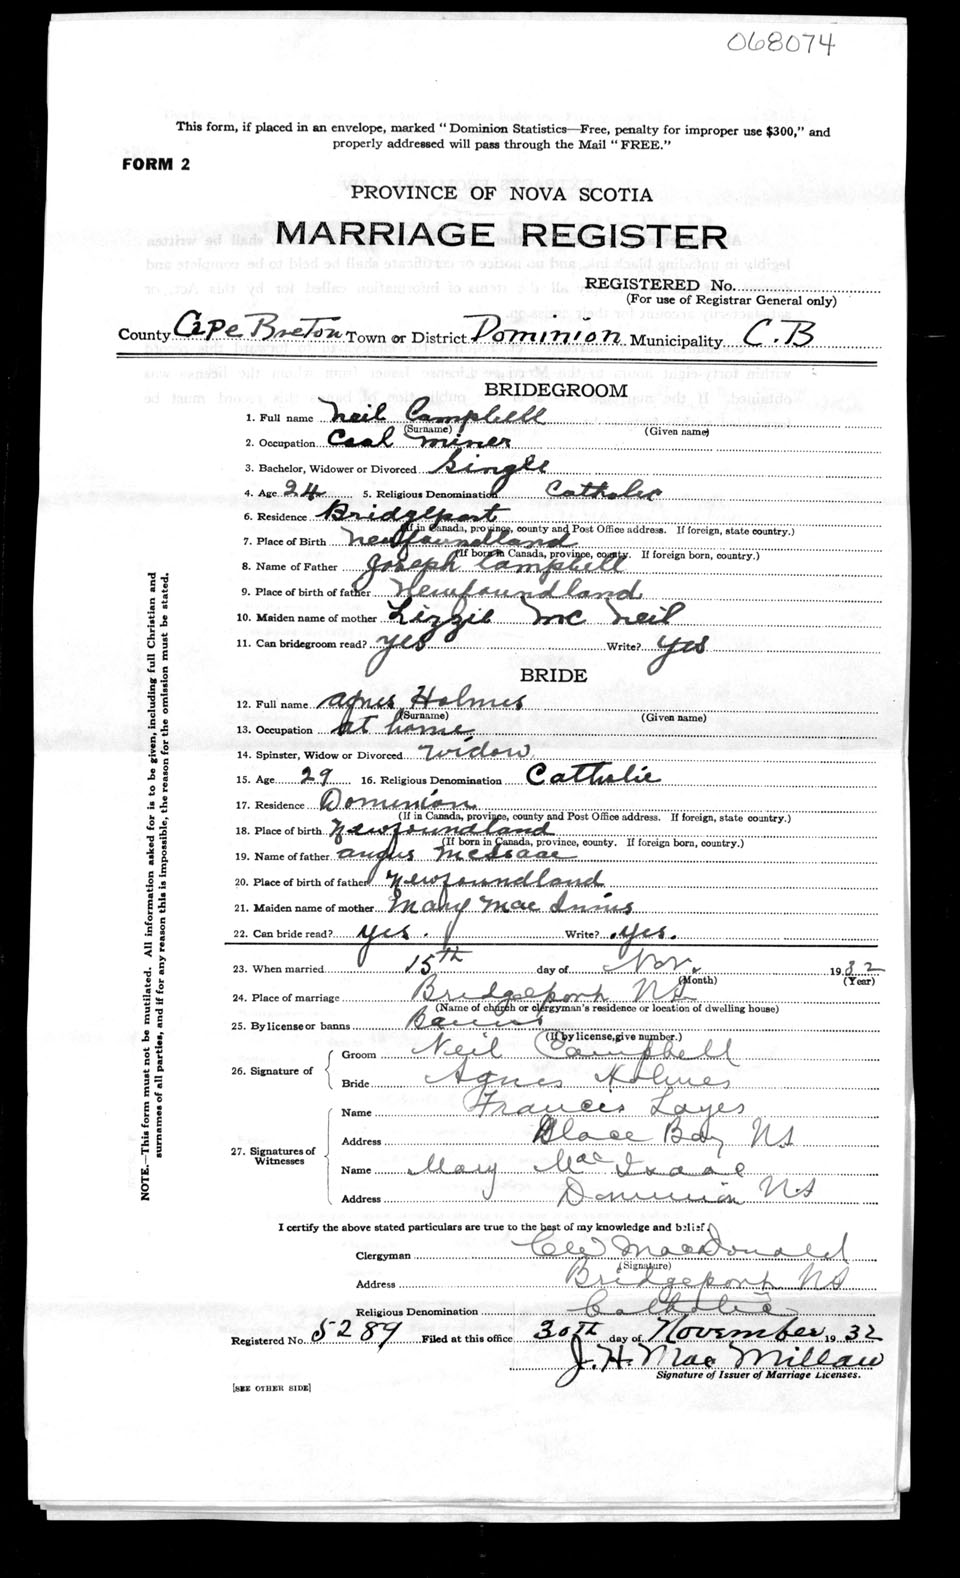 068074
This form, if placed in an envelope, marked "Dominion Statistics—Free, penalty for improper use $300," and
properly addressed will pass through the Mail "FREE."
FORM 2
PROVINCE OF NOVA SCOTIA
MARRIAGE REGISTER
REGISTERED No.
(For use of Registrar General only)
County Cape Breton Town or District Dominion Municipality C.B
BRIDEGROOM
1. Full name Neil Campbell
(Surname) (Given name)
2. Occupation Coal miner
3. Bachelor, Widower or Divorced Single
4. Age 24 5. Religious Denomination Catholic
6. Residence Bridgeport
(If in Canada, province, county and Post Office address. If foreign, state country.)
7. Place of Birth Newfoundland
(If born in Canada, province, county. If foreign born, country.)
8. Name of Father Joseph Campbell
9. Place of birth of father Newfoundland
10. Maiden name of mother Lizzie McNeil
11. Can bridegroom read? yes Write? yes
BRIDE
12. Full name Agnes Holmes
(Surname) (Given name)
13. Occupation at home
14. Spinster, Widow or Divorced widow
15. Age 29 16. Religious Denomination Catholic
17. Residence Dominion
(If in Canada, province, county and Post Office address. If foreign, state country.)
18. Place of birth Newfoundland
(If born in Canada, province, county. If foreign born, country.)
19. Name of father Angus McIsaac
20. Place of birth of father Newfoundland
21. Maiden name of mother Mary MacInnis
22. Can bride read? yes. Write? yes.
23. When married 15th day of Nov. 1932
(Month) (Year)
24. Place of marriage Bridgeport NS
(Name of church or clergyman's residence or location of dwelling house)
25. By license or banns Banns
(If by license, give number.)
26. Signature of
Groom Neil Campbell
Bride Agnes Holmes
27. Signatures of Witnesses
Name Francis Layes
Address Glace Bay NS
Name Mary MacIsaac
Address Dominion NS
I certify the above stated particulars are true to the best of my knowledge and belief.
Clergyman MacDonald
(Signature)
Address Bridgeport NS
Religious Denomination Catholic
Registered No. 5289 Filed at this office 30th day of November 1932
J. H. MacMillan
Signature of Issuer of Marriage Licenses.
[SEE OTHER SIDE]
NOTE.—This form must not be mutilated. All information asked for is to be given, including full Christian and
surnames of all parties, and if for any reason this is impossible, the reason for the omission must be stated.